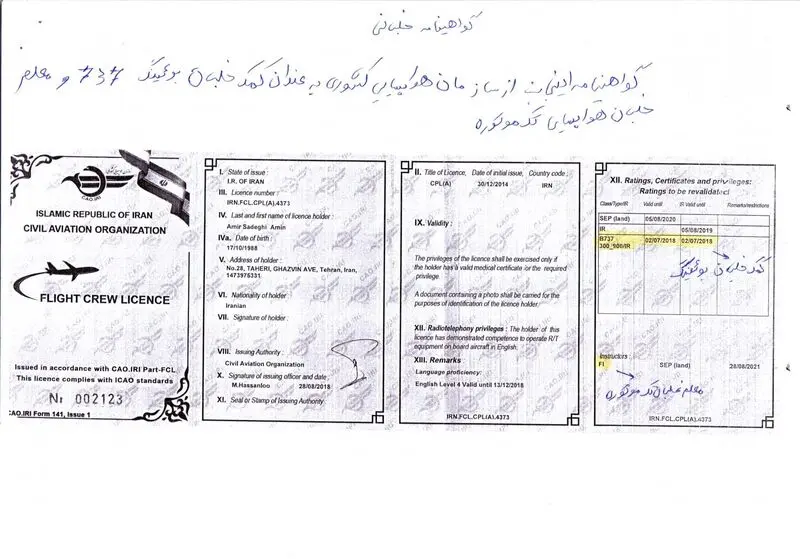 گواهینامه خلبانی
گواهینامه اینجانب از سازمان هواپیمایی کشوری به عنوان کمک خلبان بوئینگ 737 و معلم
خلبان هواپیمای تک موتوره
C.A.O.IRI
ISLAMIC REPUBLIC OF IRAN
CIVIL AVIATION ORGANIZATION
FLIGHT CREW LICENCE
Issued in accordance with CAO.IRI Part-FCL
This licence complies with ICAO standards
Nº 002123
CAO.IRI Form 141, Issue 1
I. State of issue :
I.R. OF IRAN
III. Licence number :
IRN.FCL.CPL(A).4373
IV. Last and first name of licence holder :
Amir Sadeghi Amin
IVa. Date of birth :
17/10/1988
V. Address of holder :
No.28, TAHERI, GHAZVIN AVE, Tehran, Iran,
1473975331
VI. Nationality of holder :
Iranian
VII. Signature of holder :
VIII. Issuing Authority :
Civil Aviation Organization
X. Signature of issuing officer and date :
M.Hassanloo 28/08/2018
XI. Seal or Stamp of Issuing Authority:
II. Title of Licence, Date of initial issue, Country code :
CPL(A) 30/12/2014 IRN
IX. Validity :
The privileges of the licence shall be exercised only if
the holder has a valid medical certificate for the required
privilege.
A document containing a photo shall be carried for the
purposes of identification of the licence holder.
XII. Radiotelephony privileges : The holder of this
licence has demonstrated competence to operate R/T
equipment on board aircraft in English.
XIII. Remarks :
Language proficiency:
English Level 4 Valid until 13/12/2018
IRN.FCL.CPL(A).4373
XII. Ratings, Certificates and privileges:
Ratings to be revalidated
Class/Type/IR Valid until IR Valid until Remarks/restrictions
SEP (land) 05/08/2020
IR 05/08/2019
B737
300_900/IR 02/07/2018 02/07/2018
کمک خلبان بوئینگ
Instructors :
FI SEP (land) 28/08/2021
معلم خلبان تک موتوره
IRN.FCL.CPL(A).4373